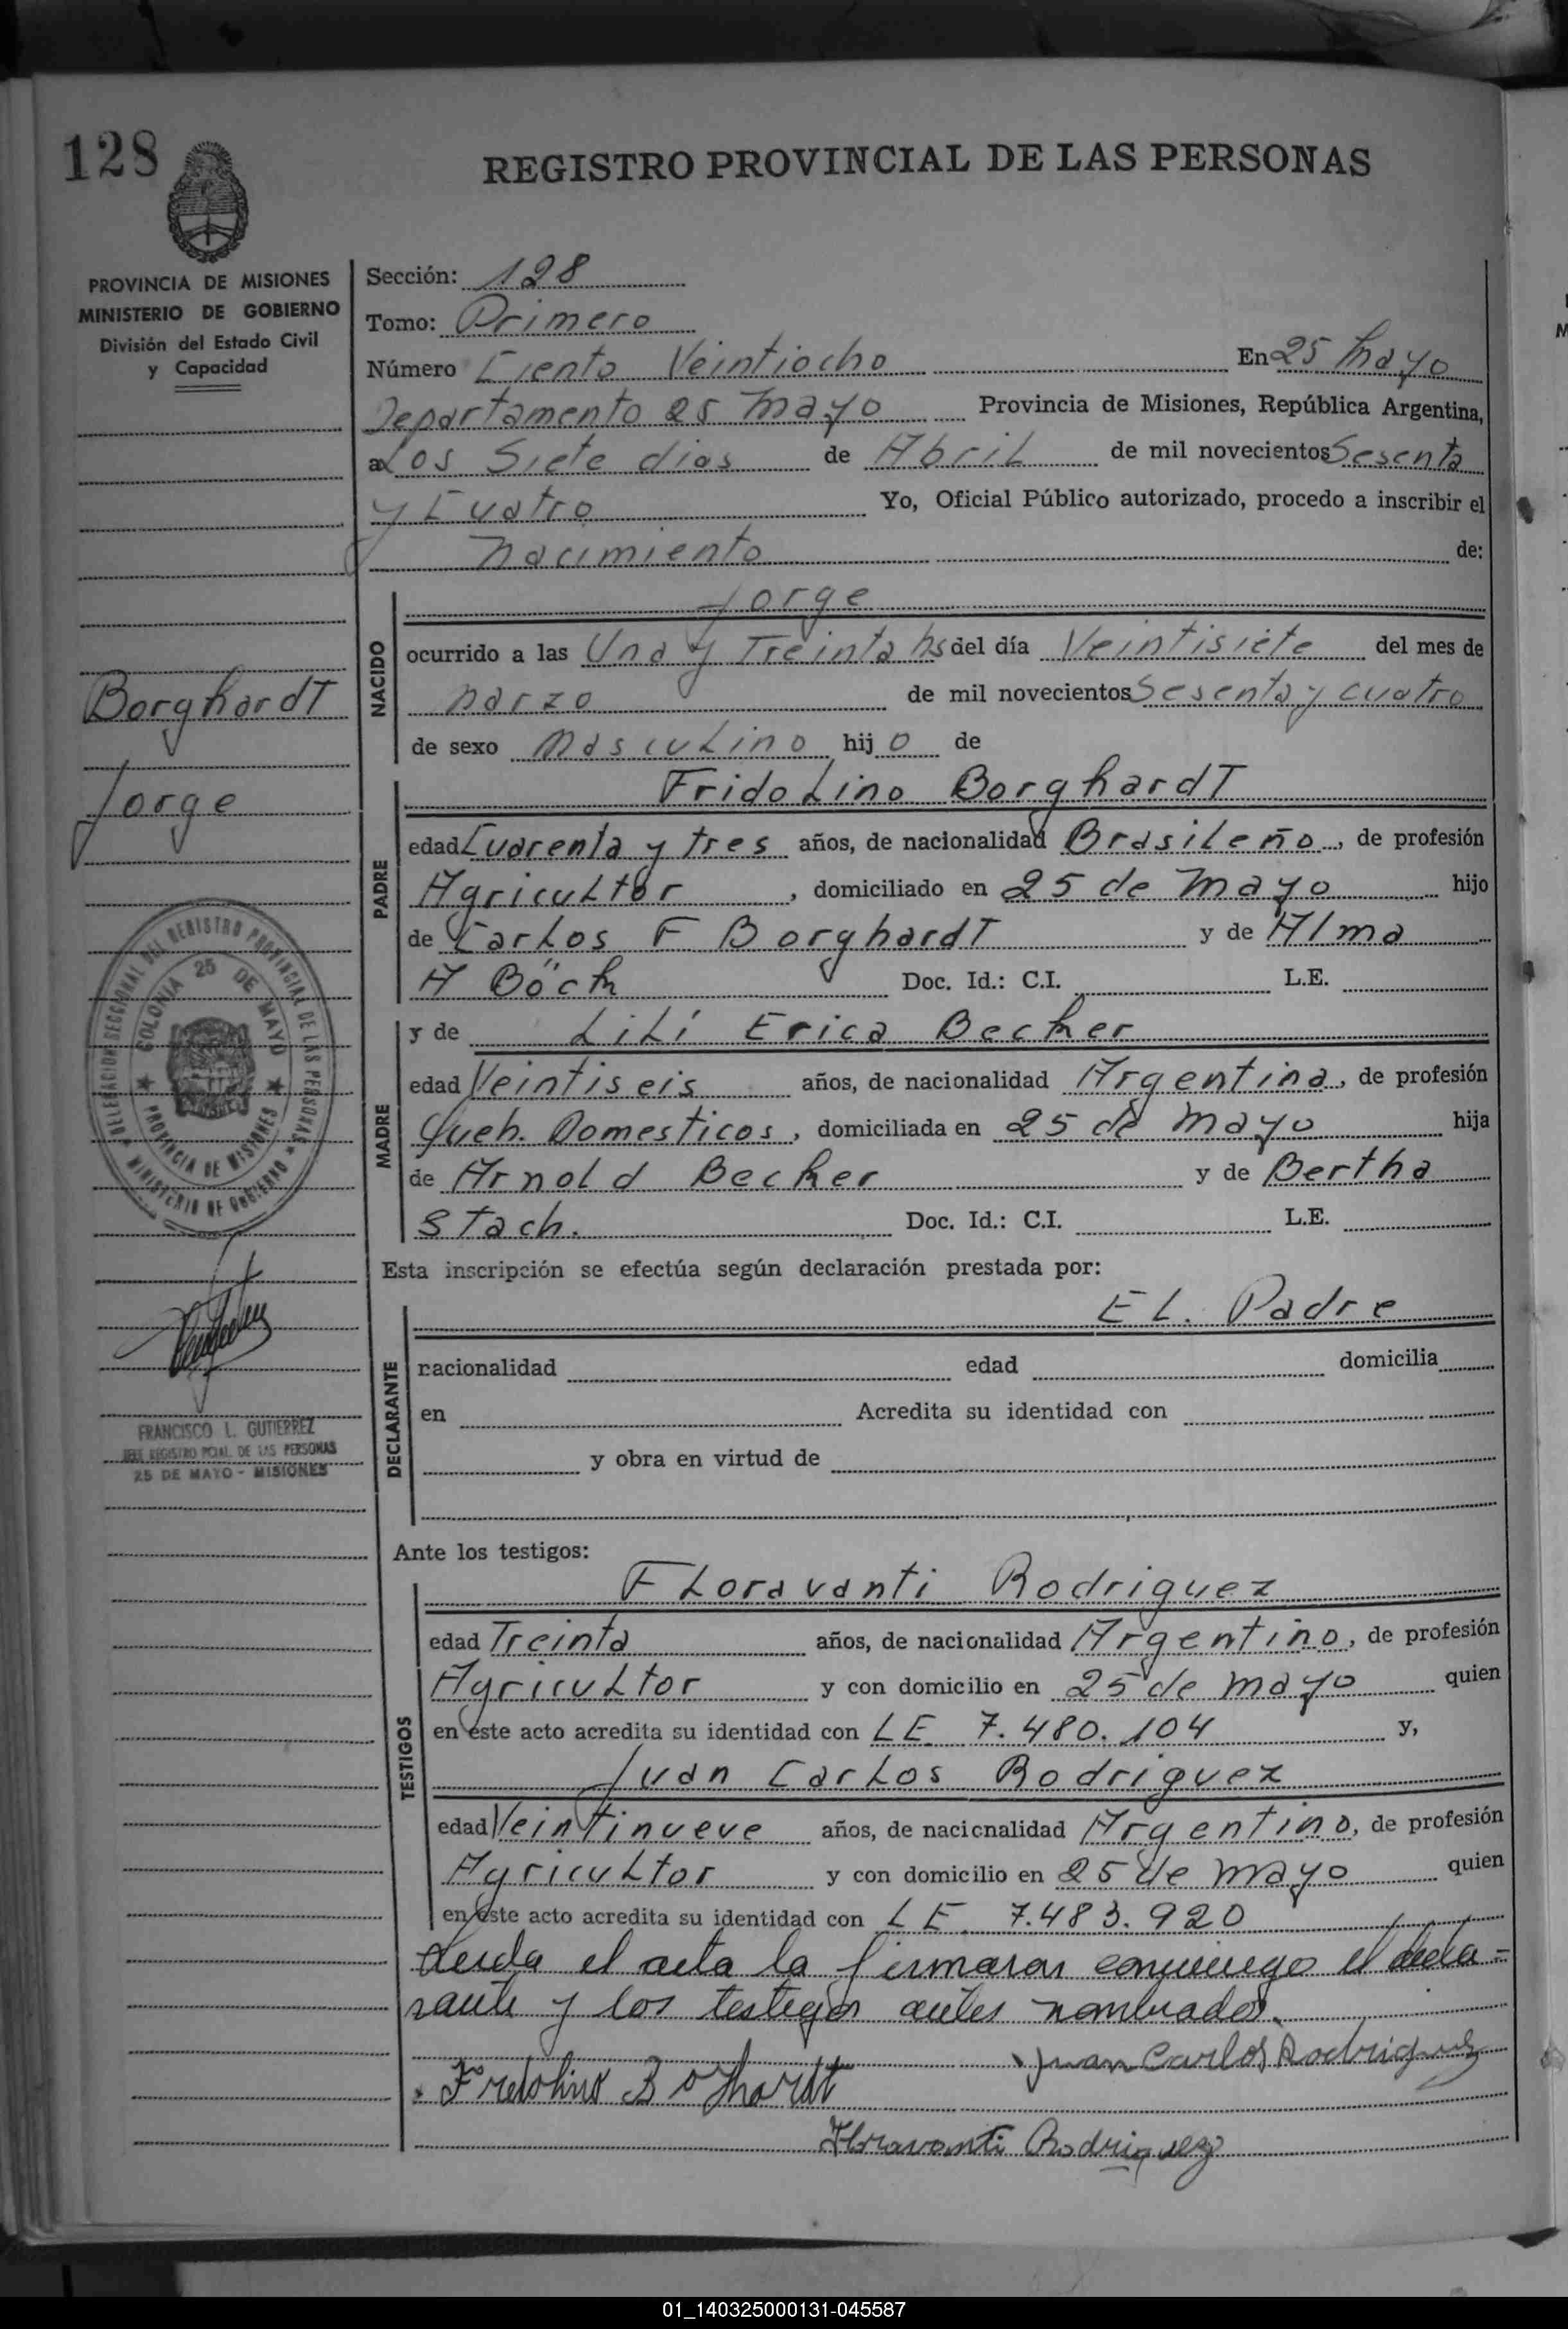 128
REGISTRO PROVINCIAL DE LAS PERSONAS
PROVINCIA DE MISIONES
MINISTERIO DE GOBIERNO
División del Estado Civil
y Capacidad
Sección: 128
Tomo: Primero
Número Ciento Veintiocho En 25 Mayo
Departamento 25 Mayo Provincia de Misiones, República Argentina,
a Los Siete dias de Abril de mil novecientos Sesenta
y Cuatro Yo, Oficial Público autorizado, procedo a inscribir el
Nacimiento de:
Jorge
NACIDO
ocurrido a las Una y Treinta hs del día Veintisiete del mes de
Marzo de mil novecientos Sesenta y cuatro
de sexo Masculino hijo de
Borghardt
Jorge
Fridolino Borghardt
PADRE
edad Cuarenta y tres años, de nacionalidad Brasileño, de profesión
Agricultor, domiciliado en 25 de Mayo hijo
de Carlos F Borghardt y de Alma
A Böck Doc. Id.: C.I. L.E.
DELEGACION SECCIONAL DEL REGISTRO PROVINCIAL DE LAS PERSONAS
MINISTERIO DE GOBIERNO
COLONIA 25 DE MAYO
PROVINCIA DE MISIONES
y de Lili Erica Becker
MADRE
edad Veintiseis años, de nacionalidad Argentina, de profesión
Queh. Domesticos, domiciliada en 25 de Mayo hija
de Arnold Becker y de Bertha
Stach. Doc. Id.: C.I. L.E.
Esta inscripción se efectúa según declaración prestada por:
EL. Padre
DECLARANTE
nacionalidad edad domicilia
en Acredita su identidad con
y obra en virtud de
FRANCISCO L. GUTIERREZ
JEFE REGISTRO PCIAL. DE LAS PERSONAS
25 DE MAYO - MISIONES
Ante los testigos:
Floravanti Rodriguez
TESTIGOS
edad Treinta años, de nacionalidad Argentino, de profesión
Agricultor y con domicilio en 25 de Mayo quien
en este acto acredita su identidad con LE 7.480.104 y,
Juan Carlos Rodriguez
edad Veintinueve años, de nacionalidad Argentino, de profesión
Agricultor y con domicilio en 25 de Mayo quien
en este acto acredita su identidad con LE 7.483.920
Leida el acta la firmaron conmigo el decla-
rante y los testigos antes nombrados.
Juan Carlos Rodriguez
Fridolino Borghardt
Floravanti Rodriguez
01_140325000131-045587